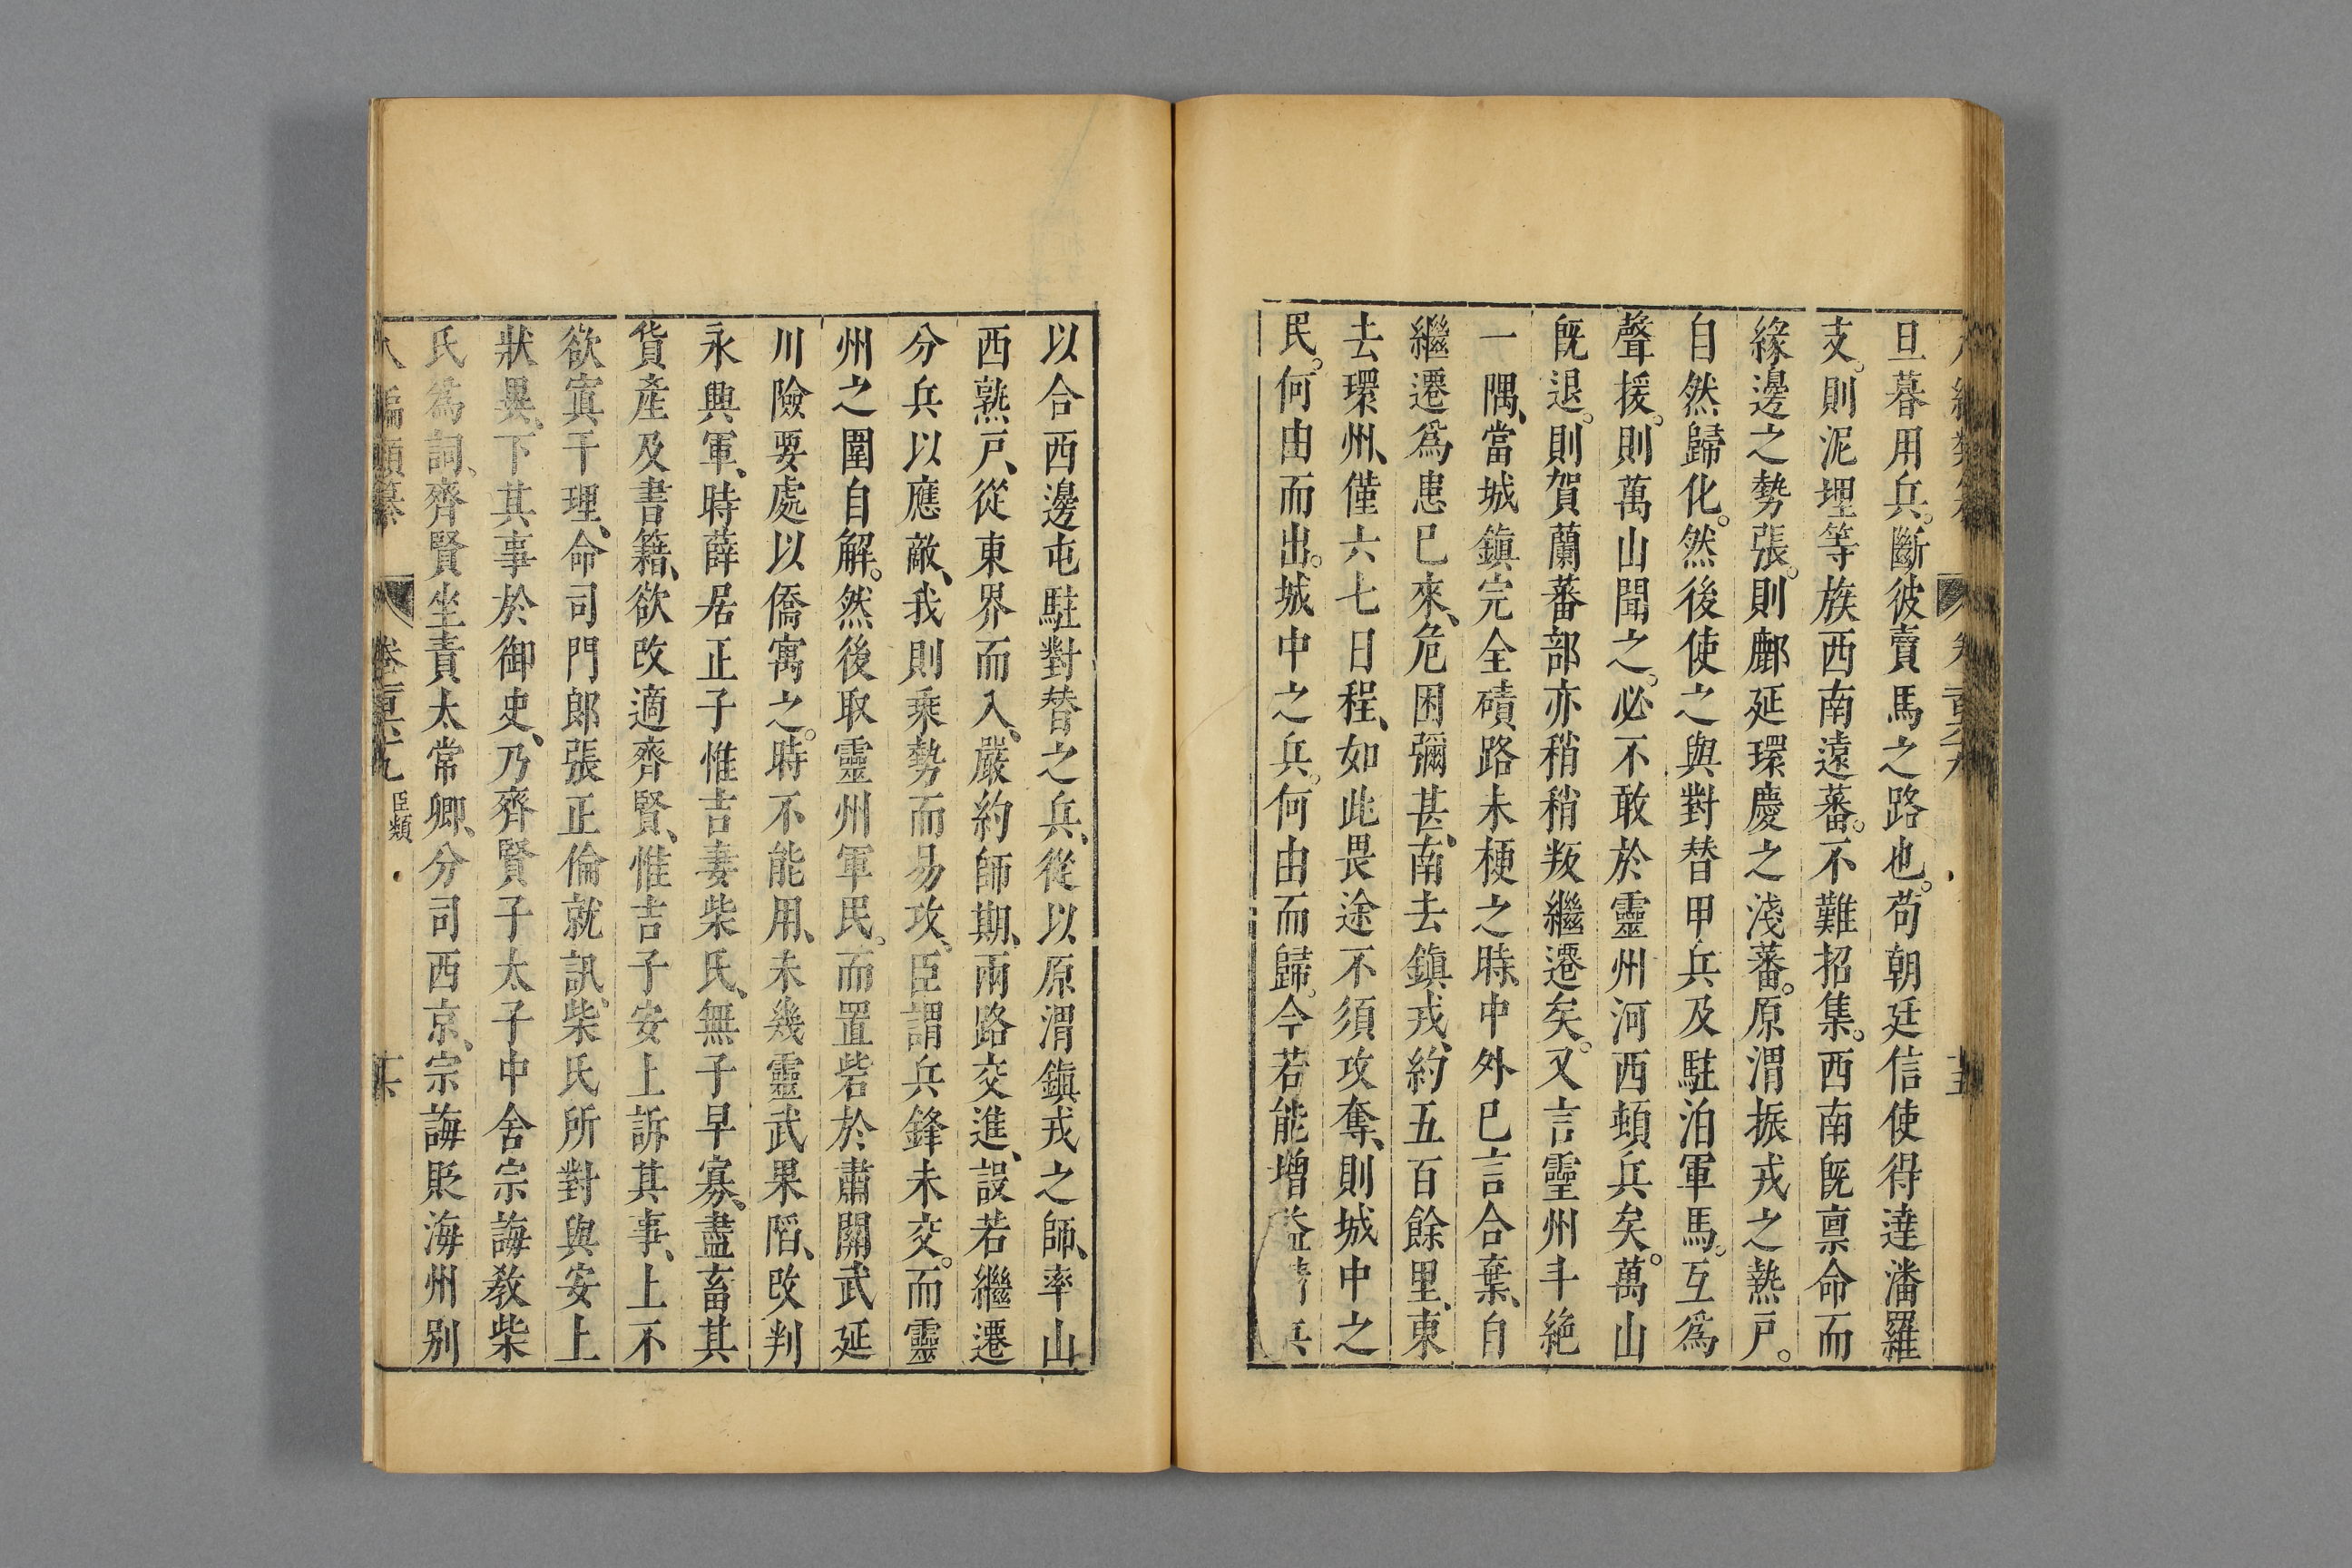 旦暮用兵。斷彼賣馬之路也。苟朝廷信使得達潘羅
支。則泥埋等族西南遠蕃。不難招集。西南既禀命而
緣邊之勢張。則鄜延環慶之淺蕃。原渭振戎之熱戸。
自然歸化。然後使之與對替甲兵及駐泊軍馬。互爲
聲援。則萬山聞之。必不敢於靈州河西頓兵矣。萬山
既退。則賀蘭蕃部亦稍稍叛繼遷矣。又言靈州斗絶
一隅、當城鎭完全磧路未梗之時、中外已言合棄、自
繼遷爲患已來、危困彌甚、南去鎭戎、約五百餘里、東
去環州、僅六七日程、如此畏途不須攻奪、則城中之
民。何由而出。城中之兵。何由而歸。今若能增益兵
以合西邊屯駐對替之兵、從以原渭鎭戎之師、率山
西熟戸、從東界而入、嚴約師期、兩路交進、設若繼遷
分兵以應敵、我則乘勢而易攻、臣謂兵鋒未交。而靈
州之圍自解。然後取靈州軍民。而置砦於蕭關武延
川險要處以僑寓之。時不能用、未幾靈武果陷、改判
永興軍、時薛居正子惟吉妻柴氏、無子早寡、盡畜其
貨產及書籍、欲改適齊賢、惟吉子安上訴其事、上不
欲寘干理、命司門郎張正倫就訊、柴氏所對與安上
狀異、下其事於御史、乃齊賢子太子中舍宗誨敎柴
氏爲詞、齊賢坐責太常卿、分司西京、宗誨貶海州别
八編類纂 卷百六九 臣類